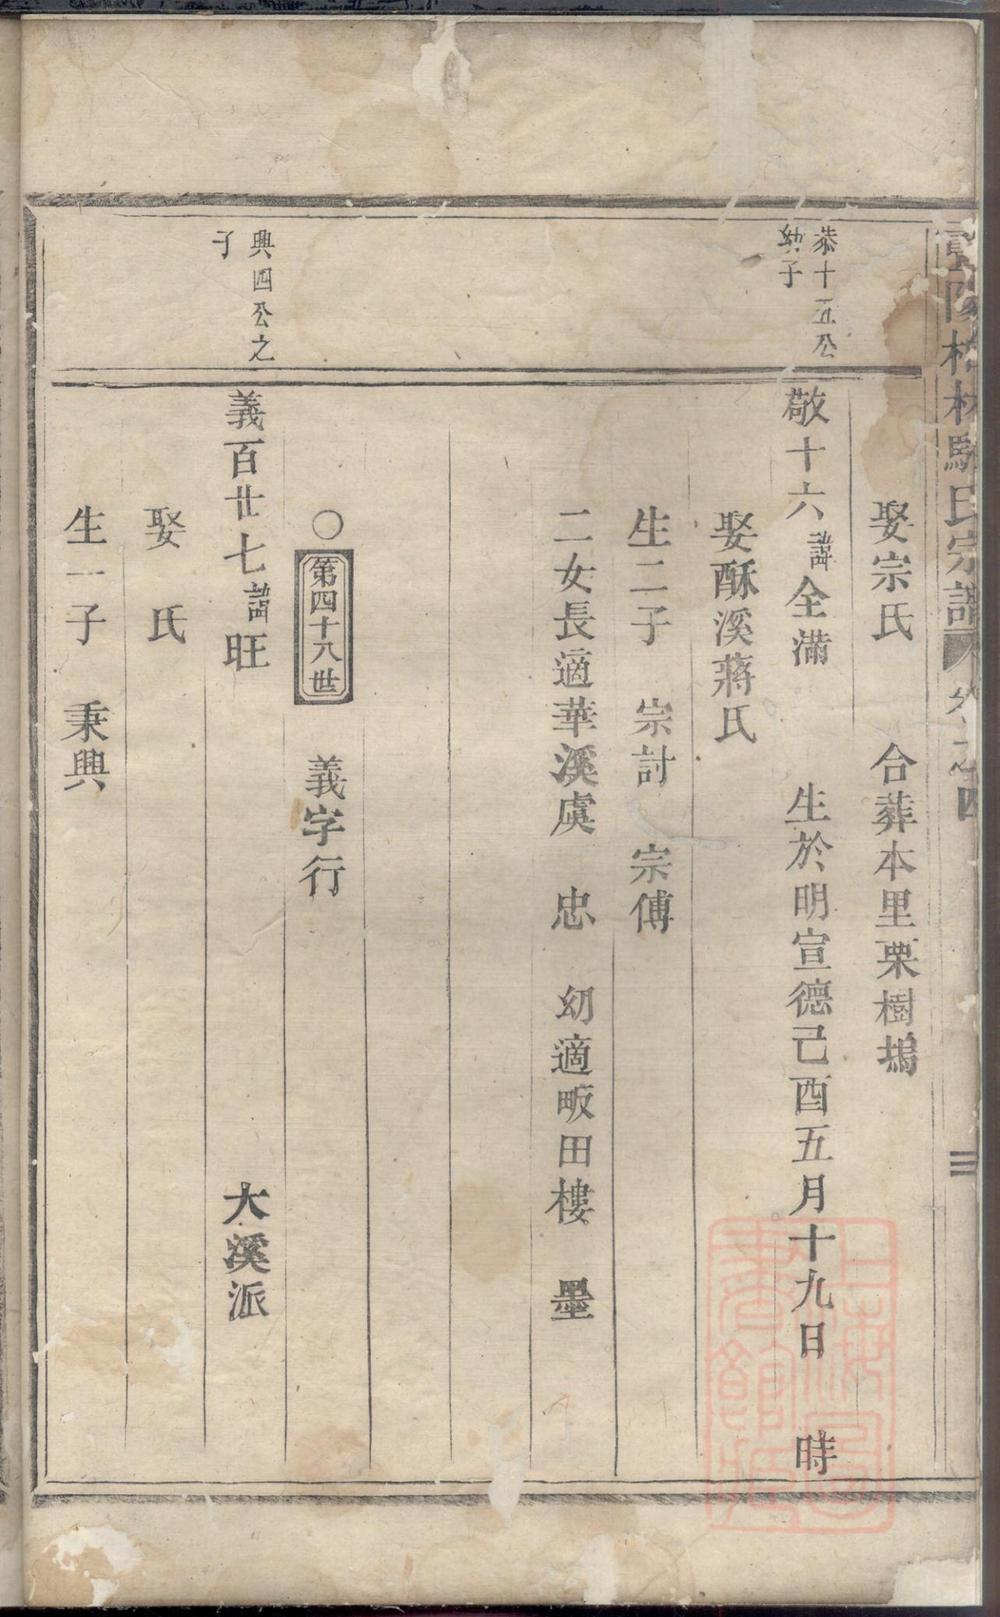 松林駱氏宗譜 卷之四 三
娶宗氏 合葬本里栗樹塢
恭十五公
幼子
敬十六諱全滿 生於明宣德己酉五月十九日 時
娶酥溪蔣氏
生二子 宗討 宗傅
二女長適華溪虞 忠 幼適畈田樓 墨
○第四十八世 義字行
興四公之
子
義百廿七諱旺 大溪派
娶 氏
生一子 秉興
上海圖書館藏